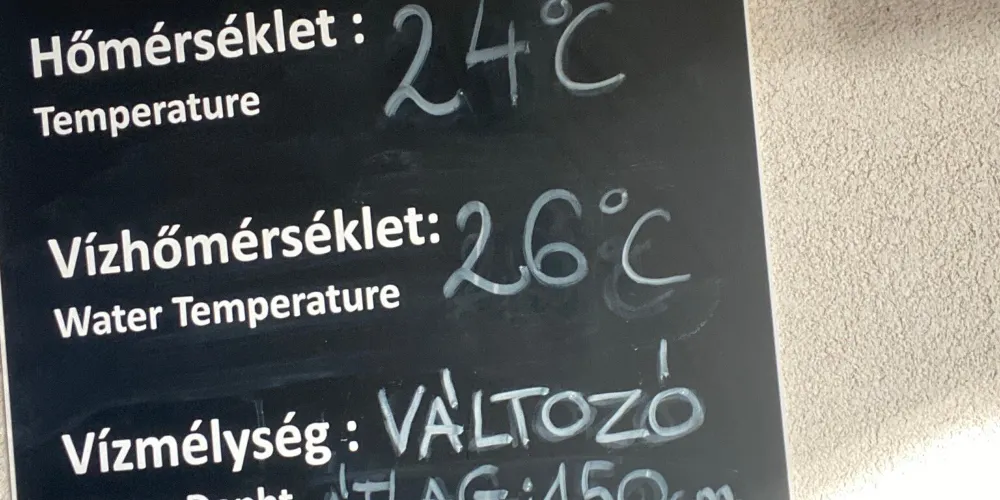 Hőmérséklet : 24°C
Temperature
Vízhőmérséklet: 26°C
Water Temperature
Vízmélység : VÁLTOZÓ
Depht ÁTLAG:150cm